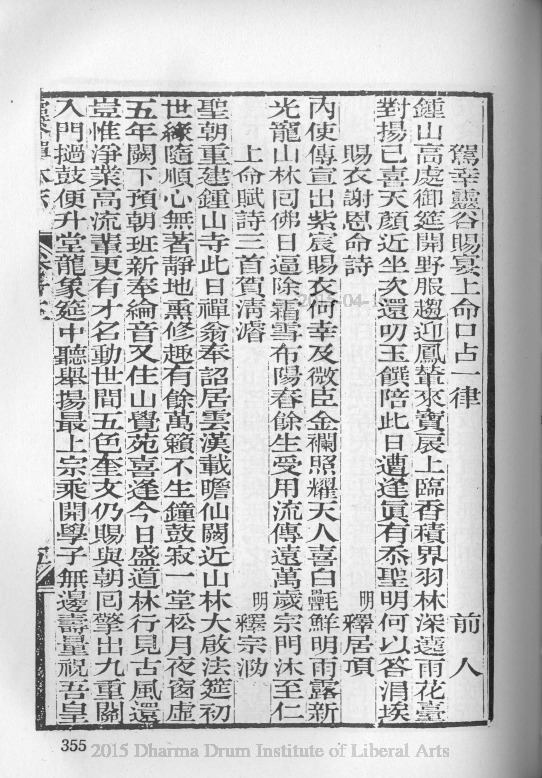 駕幸靈谷賜宴上命口占一律　前人
鍾山高處御筵開野服趨迎鳳輦來寶扆上臨香積界羽林深遶雨花臺
對揚已喜天顏近坐次還叨玉饌陪此日遭逢眞有忝聖明何以答涓埃
賜衣謝恩命詩　明釋居頂
內使傳宣出紫宸賜衣何幸及微臣金襴照耀天人喜白氎鮮明雨露新
光寵山林同佛日逼除霜雪布陽春餘生受用流傳遠萬歲宗門沐至仁
上命賦詩三首賀清濬　明釋宗泐
聖朝重建鍾山寺此日禪翁奉詔居雲漢載瞻仙闕近山林大啟法筵初
世緣隨順心無著靜地熏修趣有餘萬籟不生鐘鼓寂一堂松月夜窗虛
五年闕下預朝班新奉綸音又住山覺苑喜逢今日盛道林行見古風還
豈惟淨業高流輩更有才名動世間五色奎文仍賜與朝回擎出九重關
入門撾鼓便升堂龍象筵中聽舉揚最上宗乘開學子無邊壽量祝吾皇
355
2015 Dharma Drum Institute of Liberal Arts